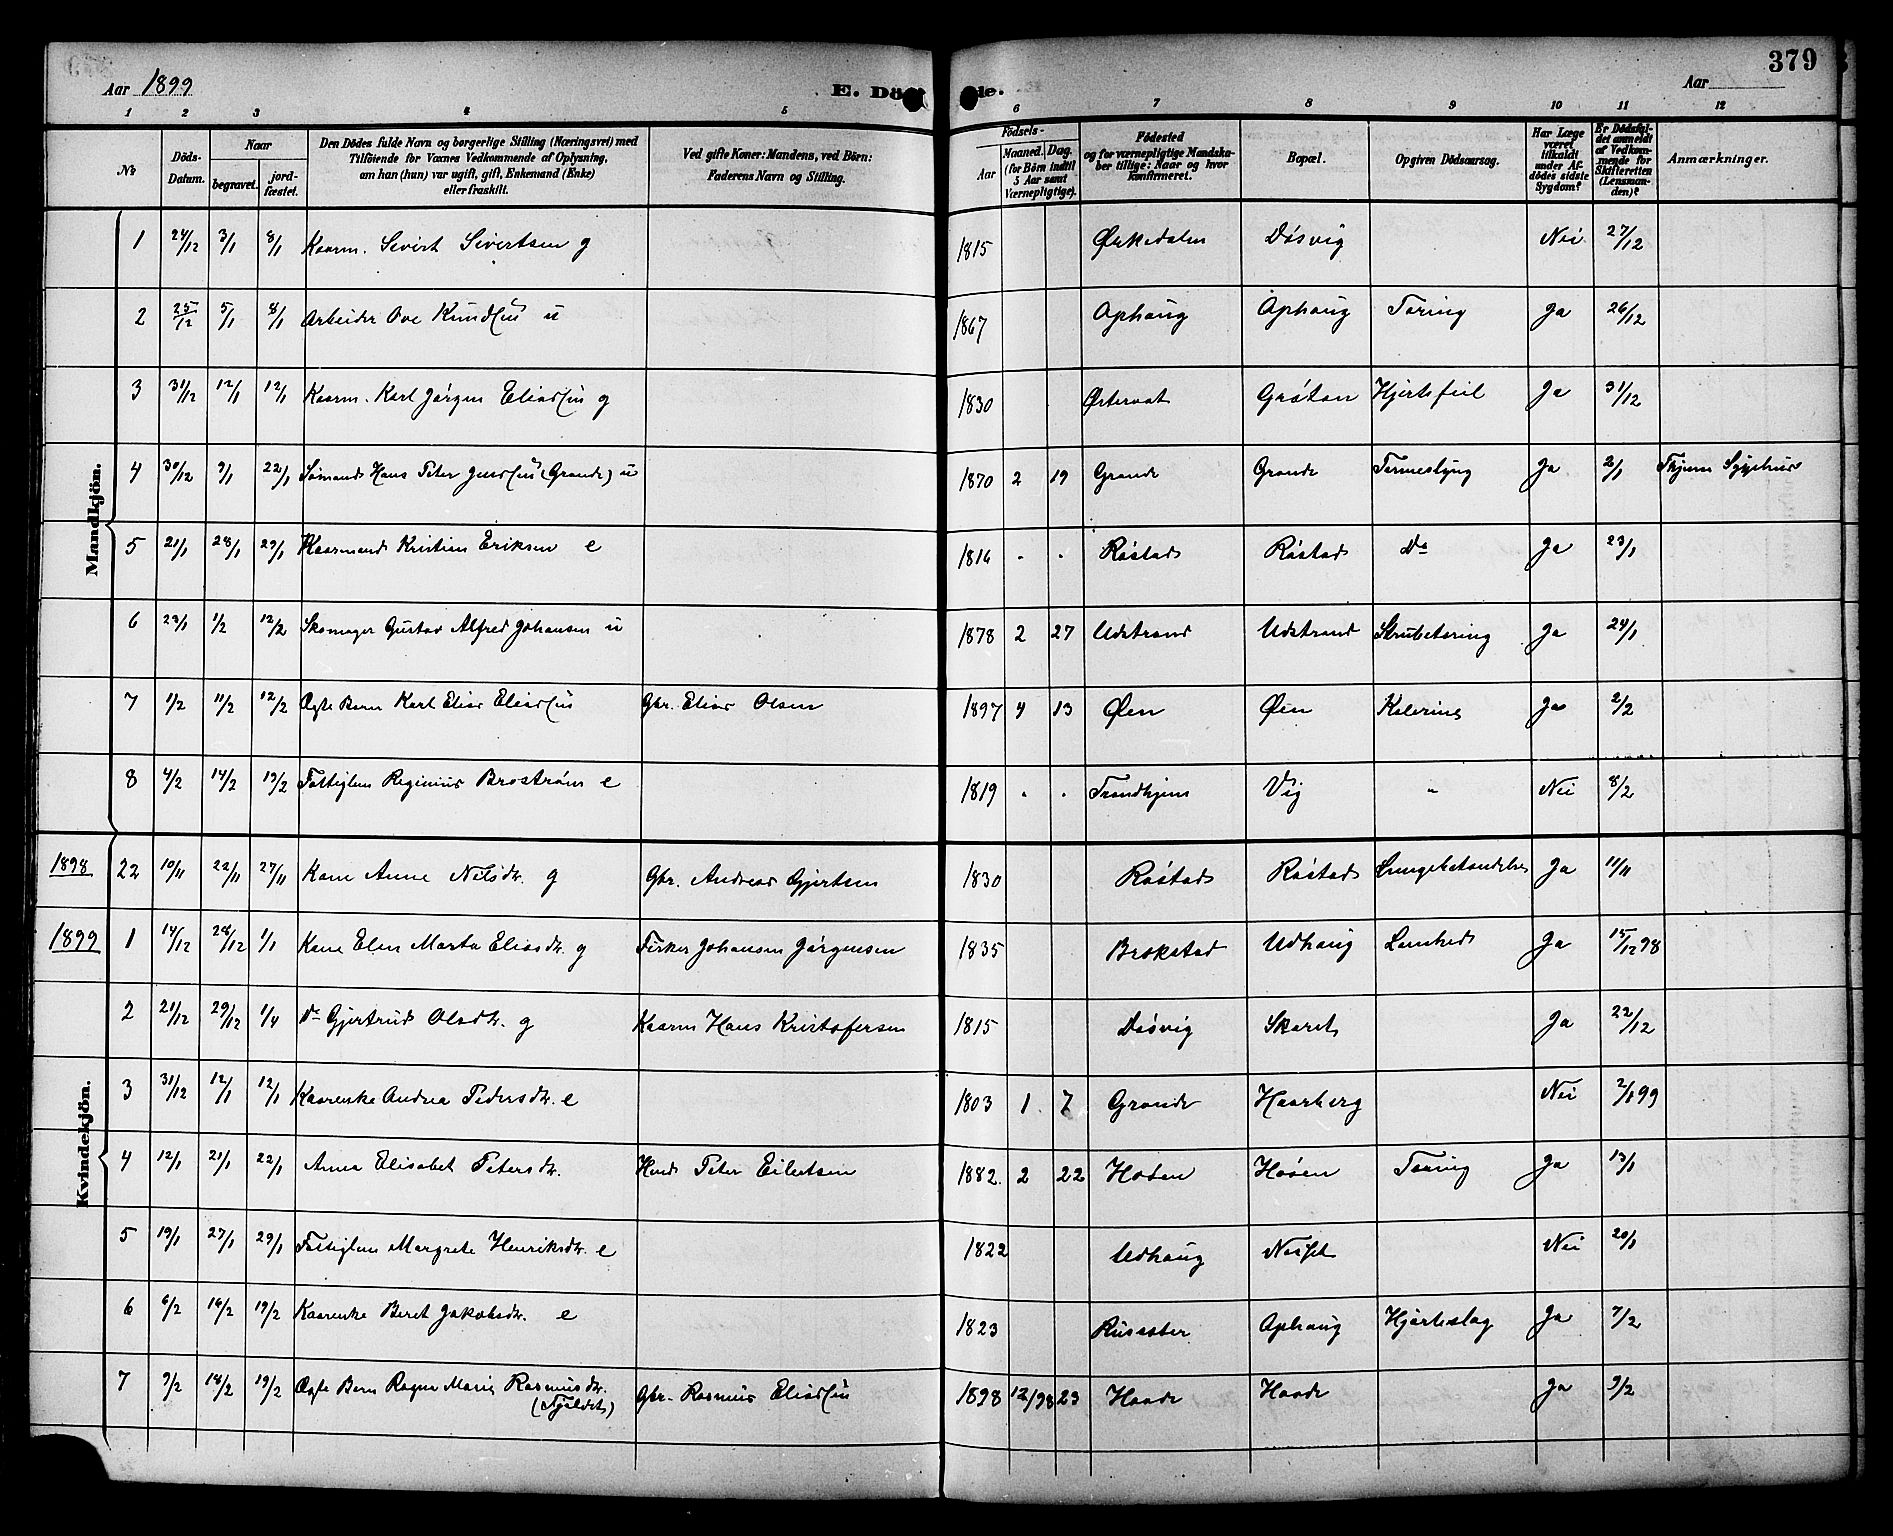 379
Aar 1899
E. Dö de.
Aar
1 2 3 4 5 6 7 8 9 10 11 12
No.
Döds-Datum.
Naar
begravet.
jord-fæstet.
Den Dödes fulde Navn og borgerlige Stilling (Næringsvei) med
Tilföiende for Voxnes Vedkommende af Oplysning,
om han (hun) var ugift, gift, Enkemand (Enke)
eller fraskilt.
Ved gifte Koner: Mandens, ved Börn:
Faderens Navn og Stilling.
Födsels-
Aar
Maaned. Dag.
(for Börn indtil
5 Aar samt
Værnepligtige).
Födested
og for værnepligtige Mandska-
ber tillige: Naar og hvor
konfirmeret.
Bopæl.
Opgiven Dödsaarsag.
Har Læge
været
tilkaldt
under Af-
dödes sidste
Sygdom?
Er Dödsfal-
det anmeldt
af Vedkom-
mende for
Skifteretten
(Lensman-
den)?
Anmærkninger.
Mandkjön.
1 24/12 3/1 8/1 Kaarm. Sivert Sivertsen g 1815 Ørkedalen Døsvig Nei 27/12
2 25/12 5/1 8/1 Arbeider Ove Knudsen u 1867 Ophaug Ophaug Tæring Ja 26/12
3 31/12 12/1 12/1 Kaarm. Karl Jørgen Eliassen g 1830 Østervat Grøtan Hjertefeil Ja 31/12
4 30/12 9/1 22/1 Sømand Hans Peter (Grande) u 1870 2 19 Grande Grande Ja 2/1 Thjems Sygehus
5 21/1 28/1 29/1 Kaarmand Kristian Eriksen e 1814 " " Røstad Røstad Do Ja 23/1
6 23/1 1/2 12/2 Skomager Gustav Alfred Johansen u 1878 2 27 Udstrand Udstrand Strubetæring Ja 24/1
7 1/2 11/2 12/2 Ægte Barn Karl Elias Eliassen Gbr. Elias Olsen 1897 4 13 Øen Øen Kolerine Ja 2/2
8 4/2 14/2 19/2 Fattiglem Reginius Brostrøm e 1819 " " Trondhjem Vig " Nei 8/2
Kvindekjön.
1898 22 10/11 22/11 27/11 Kone Anne Nilsdtr. g Gbr. Andreas Gjertsen 1830 Røstad Røstad Lungebetændelse Ja 11/11
1899 1 14/12 28/12 1/1 Kone Elen Marta Eliasdtr. g Fisker Johansen Jørgensen 1835 Brekstad Udhaug Lamhed Ja 15/12 98
2 21/12 29/12 1/4 Do Gjertrud Olsdtr. g Kaarm Hans Kristofersen 1815 Døsvig Skaret Ja 22/12
3 31/12 12/1 12/1 Kaarenke Andrea Pedersdtr. e 1803 1 7 Grande Haarberg Nei 2/1 99
4 12/1 21/1 22/1 Anna Elisabet Petersdtr. Peter Eilertsen 1882 2 22 Hoøen Hoøen Tæring Ja 13/1
5 19/1 27/1 29/1 Fattiglem Margrete Henriksdtr. e 1822 Udhaug Neset Nei 20/1
6 6/2 16/2 19/2 Kaarenke Beret Jakobsdtr. e 1823 Rusaster Ophaug Hjerteslag Ja 7/2
7 9/2 18/2 19/2 Ægte Barn Ragna Marie Rasmusdtr. Gbr. Rasmus Eliassen 1898 12/98 23 Hovde Hovde Ja 9/2